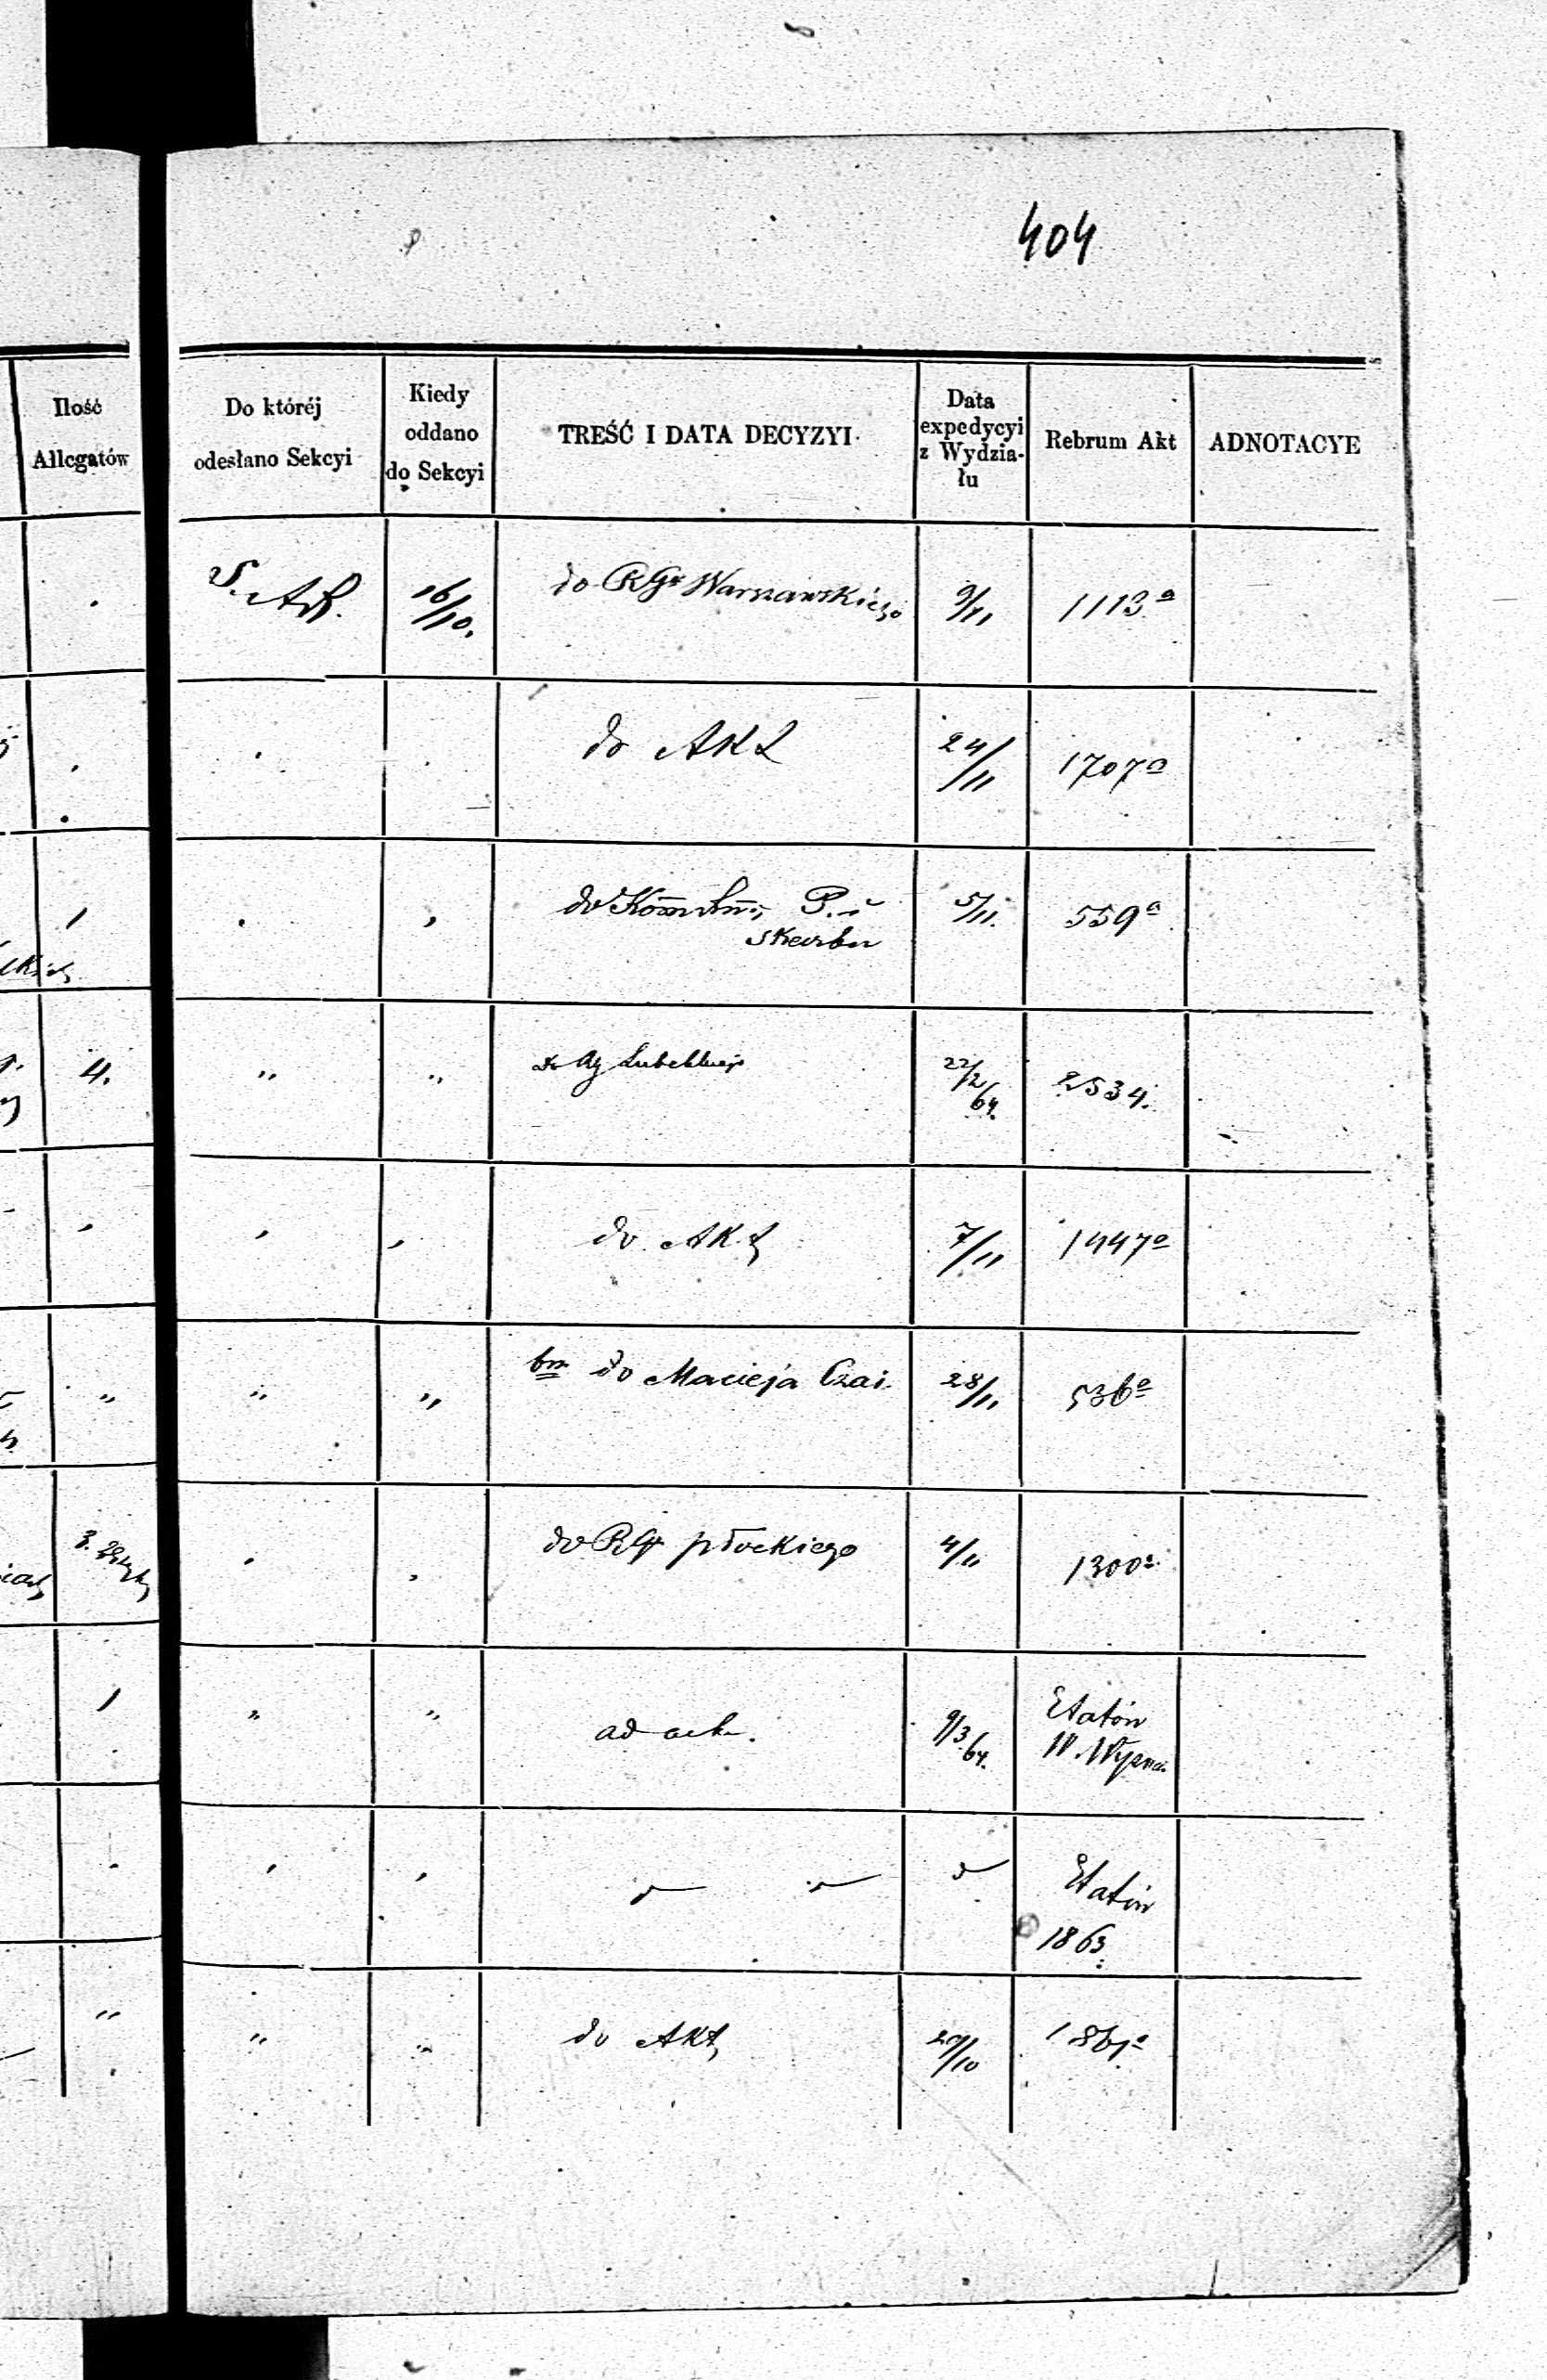 404
Ilość Allegatów
Do któréj odesłano Sekcyi
Kiedy oddano do Sekcyi
TREŚĆ I DATA DECYZYI
Data expedycyi z Wydzia-łu
Rebrum Akt
ADNOTACYE
16/10. do RGo Warszawskiego 9/11 1113a
do Akt 24/11 1707a
1 do P. i Skarbu 5/11. 559a
4. " " Lubelskiego 22/2 64. 2534.
do Akt 7/11 1447a
" " " do Macieja 28/11 536a
3. do RGo płockiego 4/11 1300a
1 " " ad acta. 9/3 64. Etatów W.
Etatów 1863
" " " do Akt 29/10 1861a